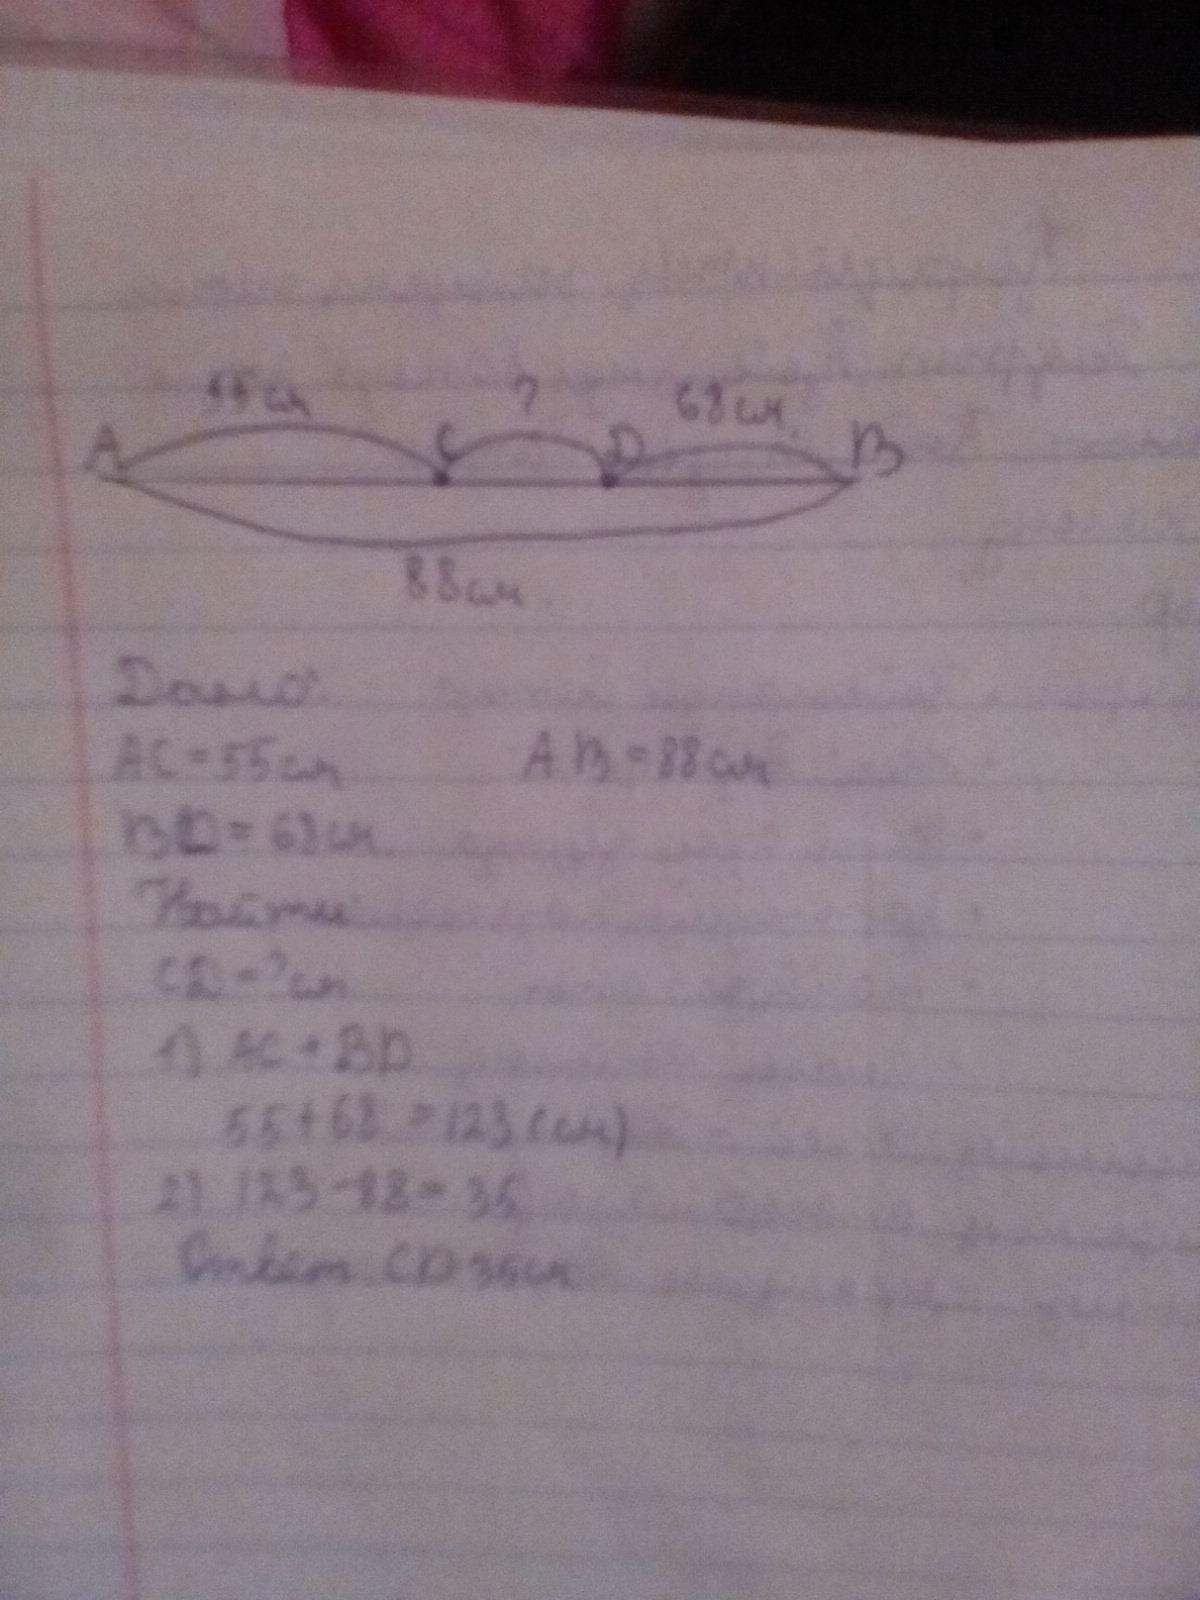 55 см ? 68 см.
A C D B
88 см.
Дано:
AC = 55 см AB = 88 см
BD = 68 см
Найти
CD = ? см
1) AC + BD
55 + 68 = 123 (см)
2) 123 - 88 = 35
Ответ CD 35 см